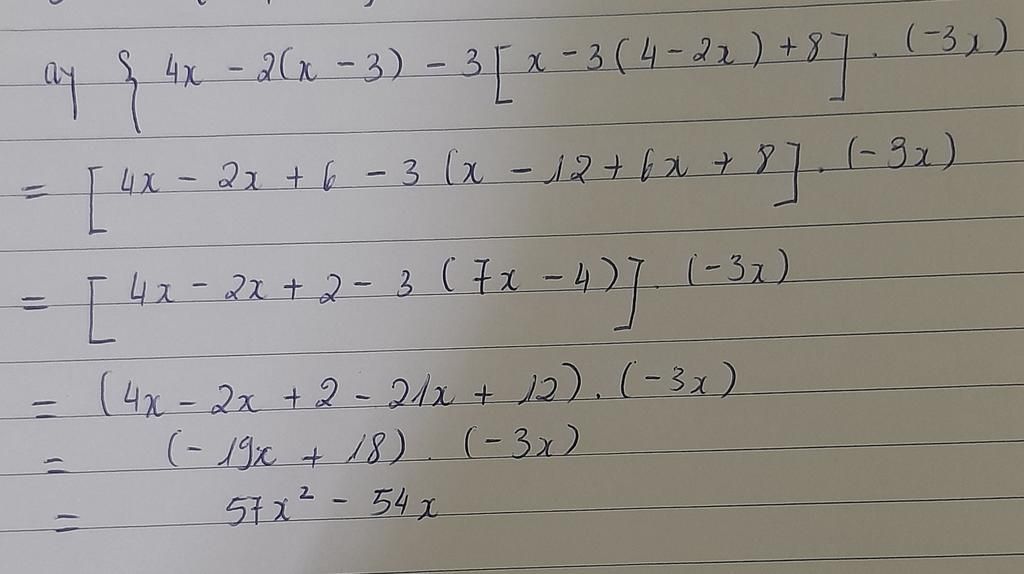 a) { 4x - 2(x - 3) - 3 [ x - 3 ( 4 - 2x ) + 8 ] . (-3x)
= [ 4x - 2x + 6 - 3 (x - 12 + 6x + 8 ] . (-3x)
= [ 4x - 2x + 2 - 3 ( 7x - 4 ) ] . (-3x)
= (4x - 2x + 2 - 21x + 12) . (-3x)
= (-19x + 18) . (-3x)
= 57x² - 54x